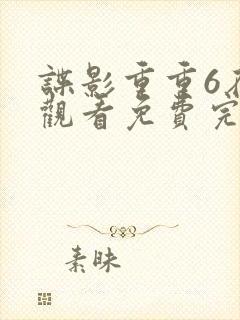 諜影重重6在
觀看免費完
素昧